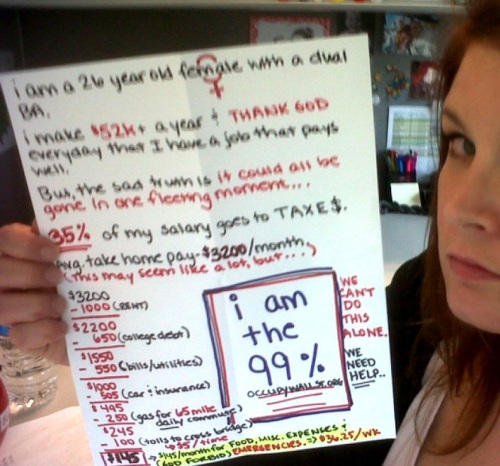 i am a 26 year old female with a dual
BA.
i make $52K+ a year & THANK GOD
everyday that I have a job that pays
well.
But, the sad truth is it could all be
gone in one fleeting moment...
35% of my salary goes to TAXE$.
Avg. take home pay-$3200/month.
(This may seem like a lot, but...)
$3200
- 1000 (RENT)
$2200
- 650 (college debt)
$1550
- 550 (bills/utilities)
$1000
- 505 (car & insurance)
$495
- 250 (gas for 65 mile
daily commute)
$245
- 100 (tolls to cross bridge)
↳ $5/time
$145 → $145/month for FOOD, MISC. EXPENSES &
(GOD FORBID) EMERGENCIES. => $36.25/WK
i am
the
99%
OCCUPYWALLST.ORG
WE
CAN'T
DO
THIS
ALONE.
WE
NEED
HELP..